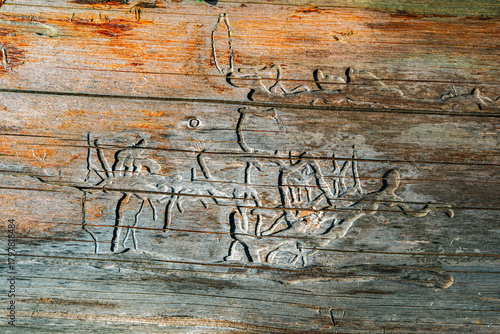 Adobe Stock | #1727818484